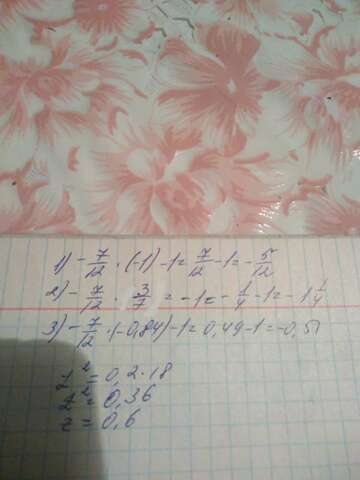 1) - 7/12 · (-1) - 1 = 7/12 - 1 = - 5/12
2) - 7/12 · 3/7 = - 1 = - 1/4 - 1 = - 1 1/4
3) - 7/12 · (-0,84) - 1 = 0,49 - 1 = -0,51
= 0,2 · 18
= 0,36
= 0,6